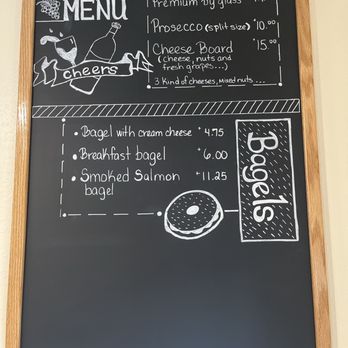 MENU
Premium by glass
Prosecco (split size) $10.00
Cheese Board $15.00
(cheese, nuts and
fresh grapes...)
3 Kind of cheeses, mixed nuts...
cheers
• Bagel with cream cheese $4.75
• Breakfast bagel $6.00
• Smoked Salmon $11.25
bagel
Bagels